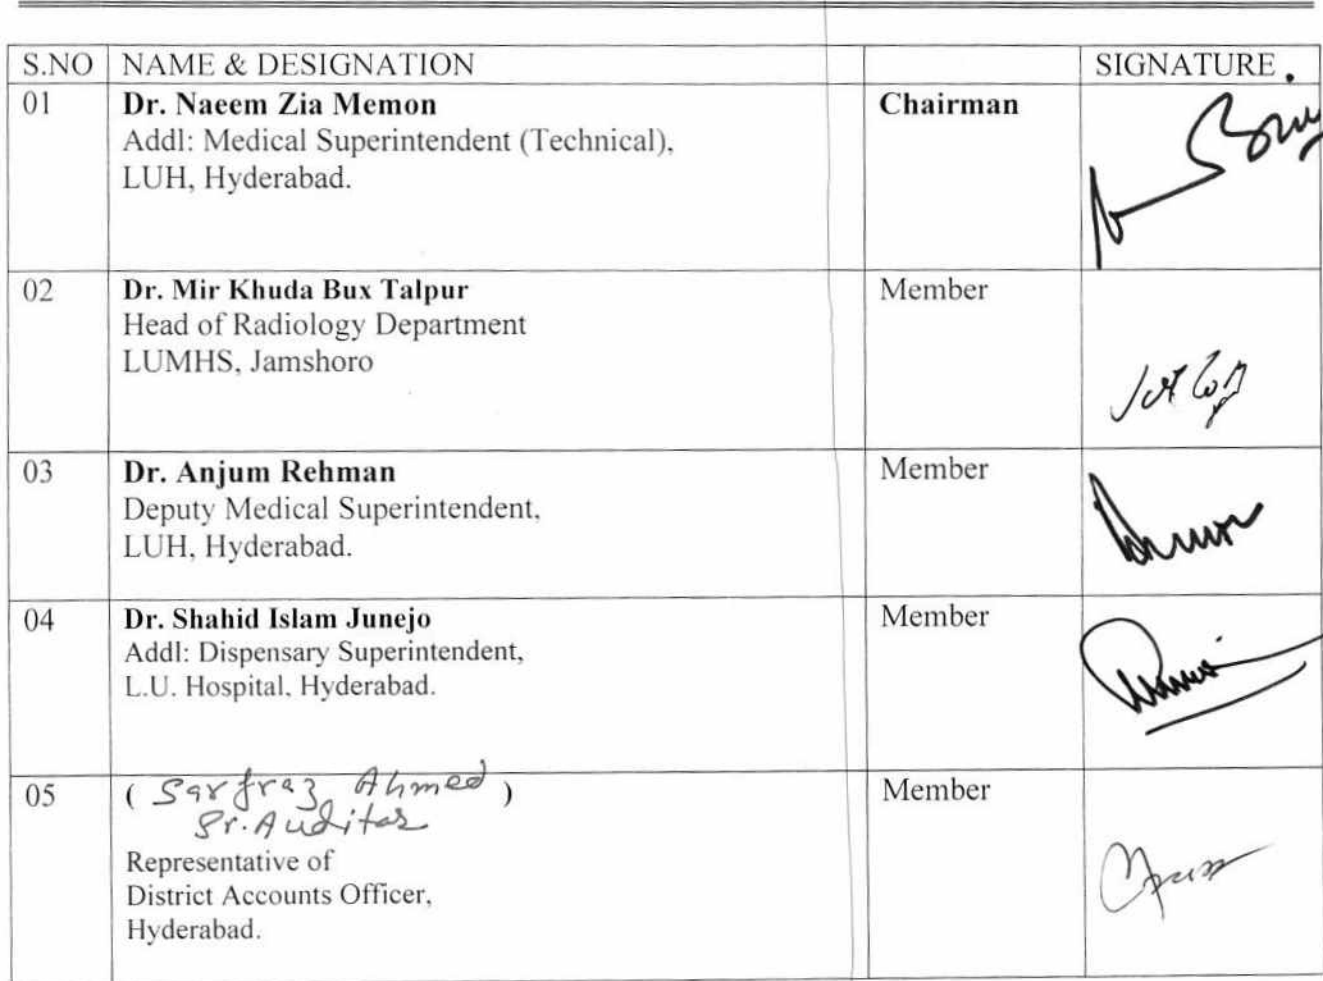 S.NO NAME & DESIGNATION SIGNATURE
01 Dr. Naeem Zia Memon Chairman
Addl: Medical Superintendent (Technical),
LUH, Hyderabad.
02 Dr. Mir Khuda Bux Talpur Member
Head of Radiology Department
LUMHS, Jamshoro
03 Dr. Anjum Rehman Member
Deputy Medical Superintendent,
LUH, Hyderabad.
04 Dr. Shahid Islam Junejo Member
Addl: Dispensary Superintendent,
L.U. Hospital, Hyderabad.
05 ( Sarfraz Ahmed ) Member
Sr. Auditor
Representative of
District Accounts Officer,
Hyderabad.